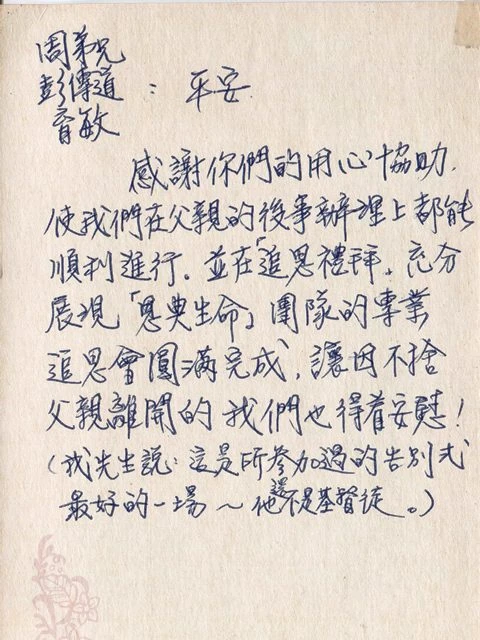 周弟兄
彭傳道：平安
育敏
感謝你們的用心協助.
使我們在父親的後事辦理上都能
順利進行.並在「追思禮拜」充分
展現「恩典生命」團隊的專業
追思會圓滿完成,讓因不捨
父親離開的我們也得着安慰!
(我先生說:這是所參加過的告別式
最好的一場~他還不是基督徒。)